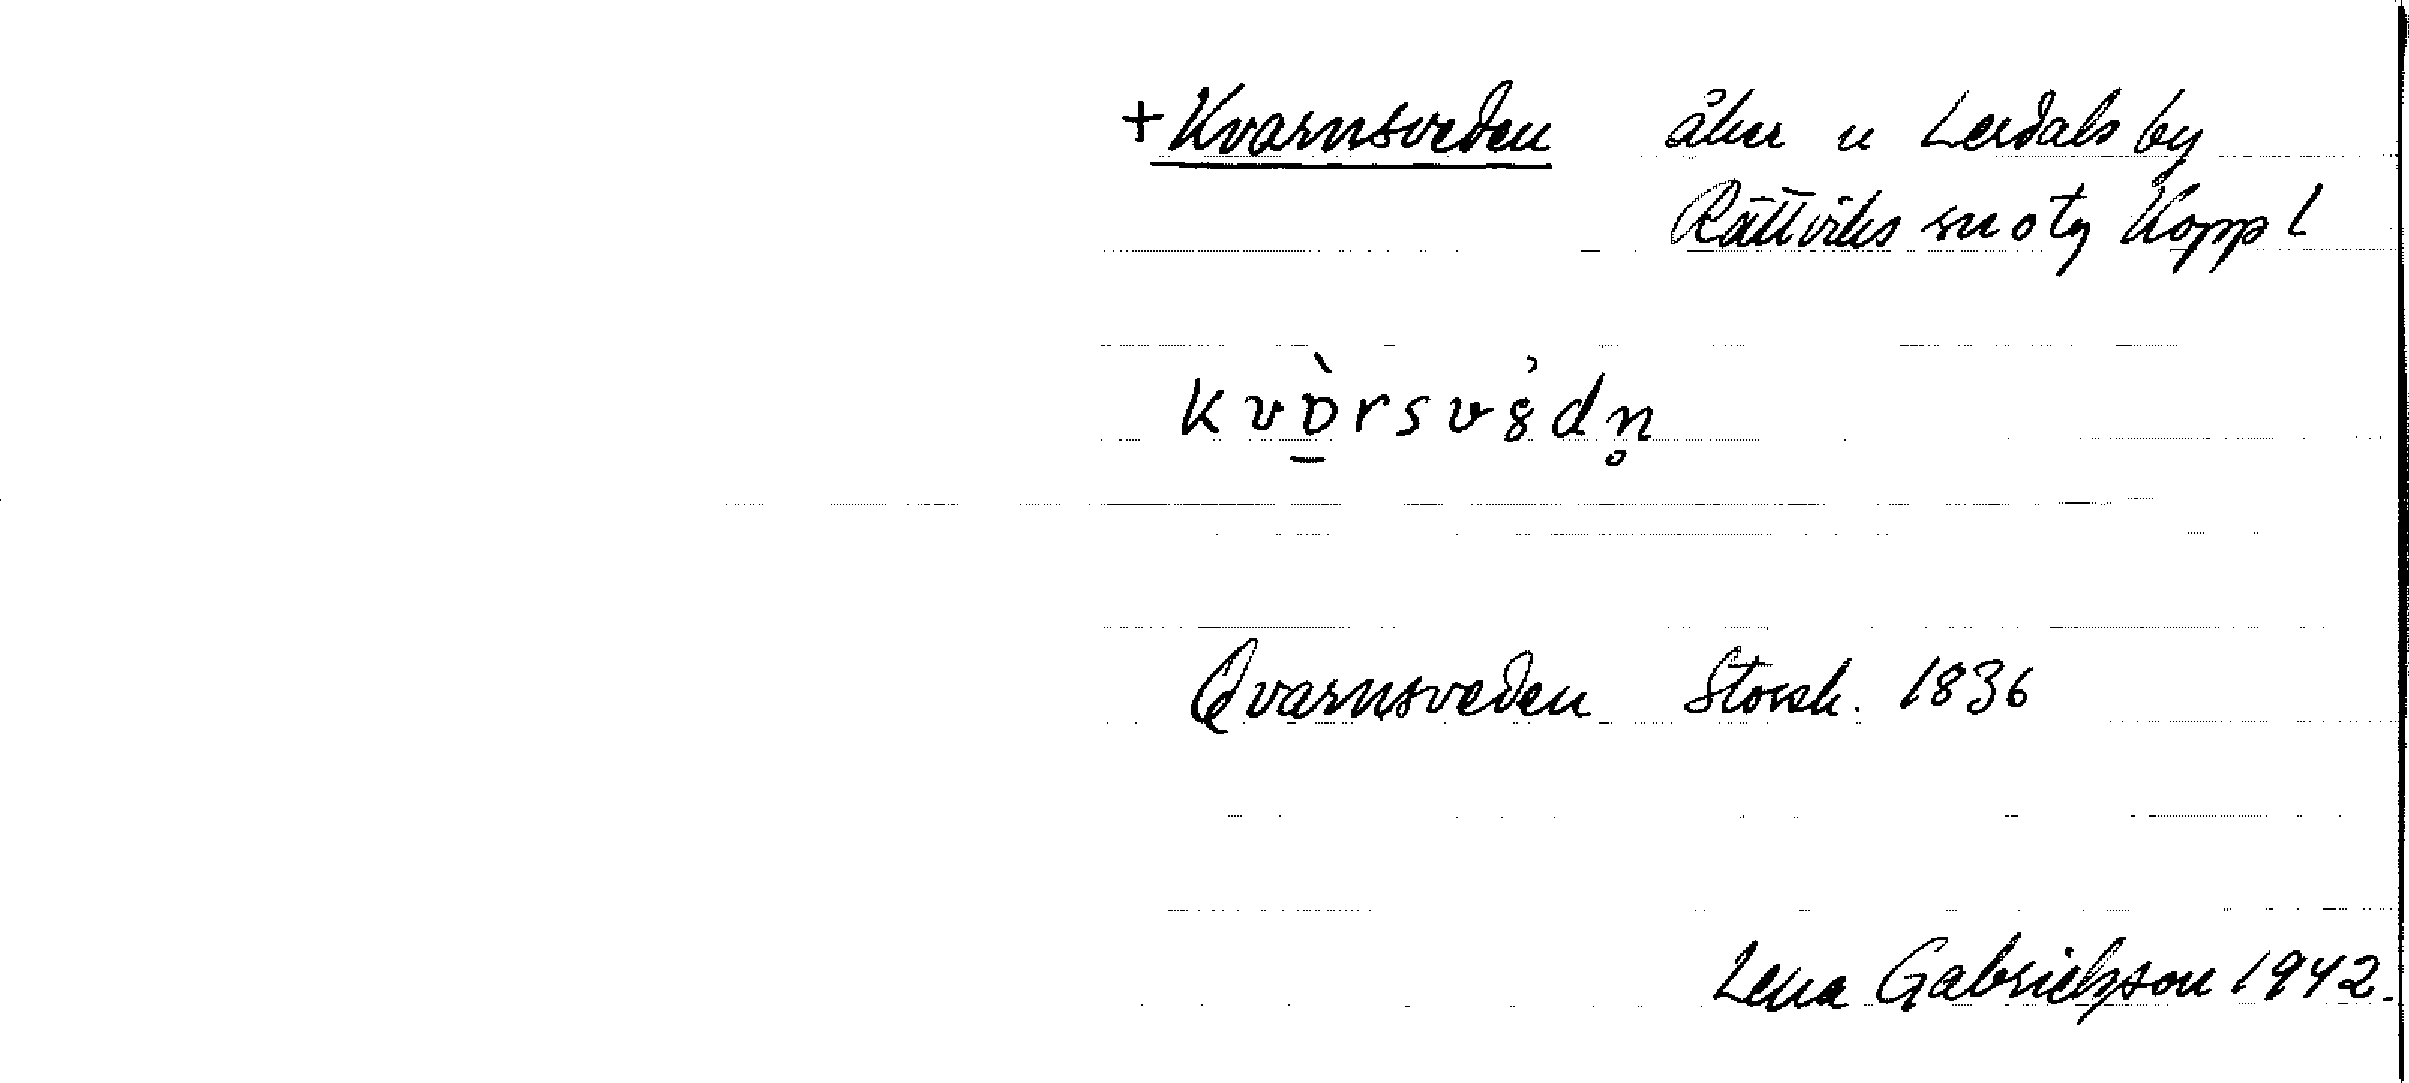 + Kvarnsveden åker u Lerdals by
Rättviks sn o tg Kopp l
Qvarnsveden Storsk. 1836
Lena Gabrielsson 1942.